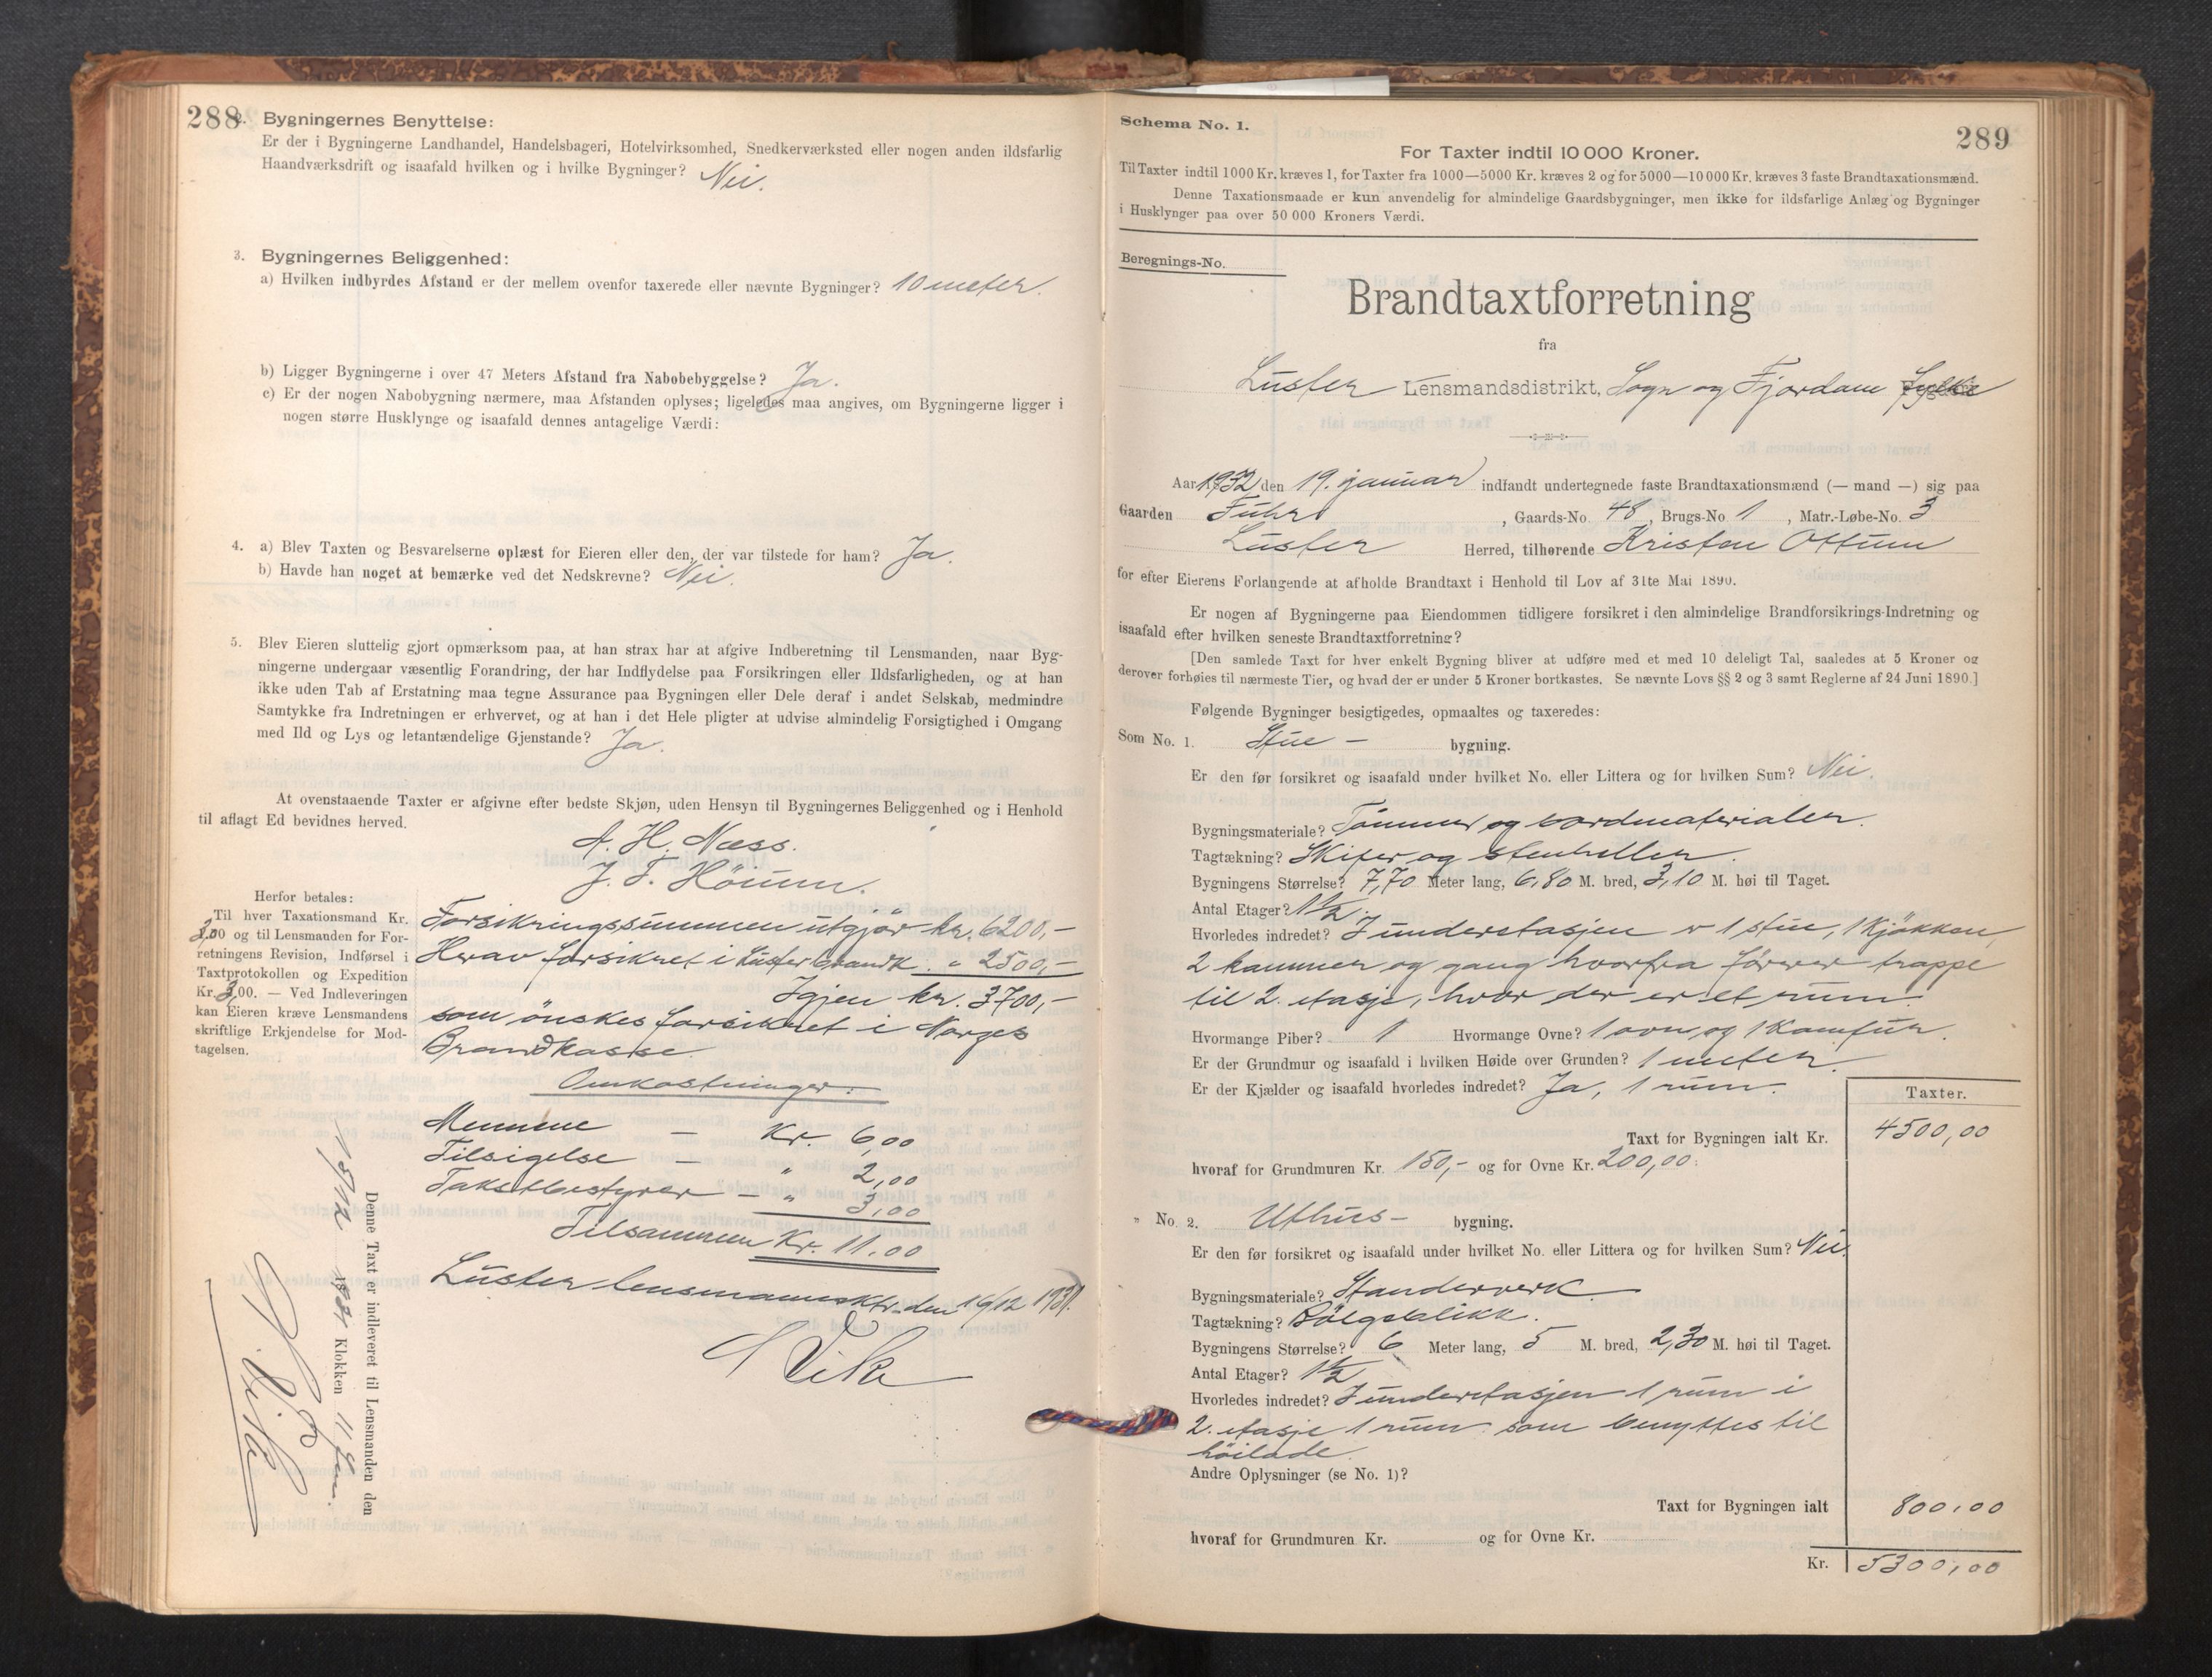 288
2. Bygningernes Benyttelse:
Er der i Bygningerne Landhandel, Handelsbageri, Hotelvirksomhed, Snedkerværksted eller nogen anden ildsfarlig
Haandværksdrift og isaafald hvilken og i hvilke Bygninger? Nei.
3. Bygningernes Beliggenhed:
a) Hvilken indbyrdes Afstand er der mellem ovenfor taxerede eller nævnte Bygninger? 10 meter.
b) Ligger Bygningerne i over 47 Meters Afstand fra Nabobebyggelse? Ja.
c) Er der nogen Nabobygning nærmere, maa Afstanden oplyses; ligeledes maa angives, om Bygningerne ligger i
nogen større Husklynge og isaafald dennes antagelige Værdi:
4. a) Blev Taxten og Besvarelserne oplæst for Eieren eller den, der var tilstede for ham? Ja.
b) Havde han noget at bemærke ved det Nedskrevne? Nei.
5. Blev Eieren sluttelig gjort opmærksom paa, at han strax har at afgive Indberetning til Lensmanden, naar Byg-
ningerne undergaar væsentlig Forandring, der har Indflydelse paa Forsikringen eller Ildsfarligheden, og at han
ikke uden Tab af Erstatning maa tegne Assurance paa Bygningen eller Dele deraf i andet Selskab, medmindre
Samtykke fra Indretningen er erhvervet, og at han i det Hele pligter at udvise almindelig Forsigtighed i Omgang
med Ild og Lys og letantændelige Gjenstande? Ja.
At ovenstaaende Taxter er afgivne efter bedste Skjøn, uden Hensyn til Bygningernes Beliggenhed og i Henhold
til aflagt Ed bevidnes herved.
A. H. Næss.
J. T. Höium.
Herfor betales:
Til hver Taxationsmand Kr.
3,00 og til Lensmanden for For-
retningens Revision, Indførsel i
Taxtprotokollen og Expedition
Kr. 3,00. — Ved Indleveringen
kan Eieren kræve Lensmandens
skriftlige Erkjendelse for Mod-
tagelsen.
Forsikringssummen utgjør kr. 6200,-
Herav forsikret i Luster brandk. " 2500,-
Igjen kr. 3700,-
som önskes forsikret i Norges
Brandkasse.
Omkostninger:
Mennene — Kr. 6,00
Tilsigelse — " 2,00
Takstbestyrer — " 3,00
Tilsammen Kr. 11.00
Luster lensmannsktr. den 16/12 1931.
S Vik
Denne Taxt er indleveret til Lensmanden den
Klokken 11 fm.
Schema No. 1.
289
For Taxter indtil 10 000 Kroner.
Til Taxter indtil 1000 Kr. kræves 1, for Taxter fra 1000—5000 Kr. kræves 2 og for 5000—10 000 Kr. kræves 3 faste Brandtaxationsmænd.
Denne Taxationsmaade er kun anvendelig for almindelige Gaardsbygninger, men ikke for ildsfarlige Anlæg og Bygninger
i Husklynger paa over 50 000 Kroners Værdi.
Beregnings-No.
Brandtaxtforretning
fra
Luster Lensmandsdistrikt, Sogn og Fjordane Fylke
Aar 1932 den 19. januar indfandt undertegnede faste Brandtaxationsmænd (— mand —) sig paa
Gaarden Fuhr, Gaards-No. 48, Brugs-No 1, Matr.-Løbe-No. 3
Luster Herred, tilhørende Kristen Ottum
for efter Eierens Forlangende at afholde Brandtaxt i Henhold til Lov af 31te Mai 1890.
Er nogen af Bygningerne paa Eiendommen tidligere forsikret i den almindelige Brandforsikrings-Indretning og
isaafald efter hvilken seneste Brandtaxtforretning?
[Den samlede Taxt for hver enkelt Bygning bliver at udføre med et med 10 deleligt Tal, saaledes at 5 Kroner og
derover forhøies til nærmeste Tier, og hvad der er under 5 Kroner bortkastes. Se nævnte Lovs §§ 2 og 3 samt Reglerne af 24 Juni 1890.]
Følgende Bygninger besigtigedes, opmaaltes og taxeredes:
Som No. 1. Stue - bygning.
Er den før forsikret og isaafald under hvilket No. eller Littera og for hvilken Sum? Nei.
Bygningsmateriale? Tömmer og bordmaterialer.
Tagtækning? Skifer og stenheller.
Bygningens Størrelse? 7,70 Meter lang, 6,80 M. bred, 3,10 M. høi til Taget.
Antal Etager? 1½.
Hvorledes indredet? I understasjen er 1 stue, 1 Kjøkken,
2 kammer og gang hvorfra fører trappe
til 2. etasje, hvor der er et rum.
Hvormange Piber? 1 Hvormange Ovne? 1 ovn og 1 Komfur.
Er der Grundmur og isaafald i hvilken Høide over Grunden? 1 meter.
Er der Kjælder og isaafald hvorledes indredet? Ja, 1 rum.
Taxter.
Taxt for Bygningen ialt Kr. 4500,00
hvoraf for Grundmuren Kr. 150,- og for Ovne Kr. 200,00.
" No. 2. Uthus- bygning.
Er den før forsikret og isaafald under hvilket No. eller Littera og for hvilken Sum? Nei.
Bygningsmateriale? Standerverk.
Tagtækning? Bölgeblikk.
Bygningens Størrelse? 6 Meter lang, 5 M. bred, 2,30 M. høi til Taget.
Antal Etager? 1½
Hvorledes indredet? I understasjen 1 rum i
2. etasje 1 rum som benyttes til
höilade.
Andre Oplysninger (se No. 1)?
Taxt for Bygningen ialt 800,00
hvoraf for Grundmuren Kr. og for Ovne Kr.
Kr. 5300,00